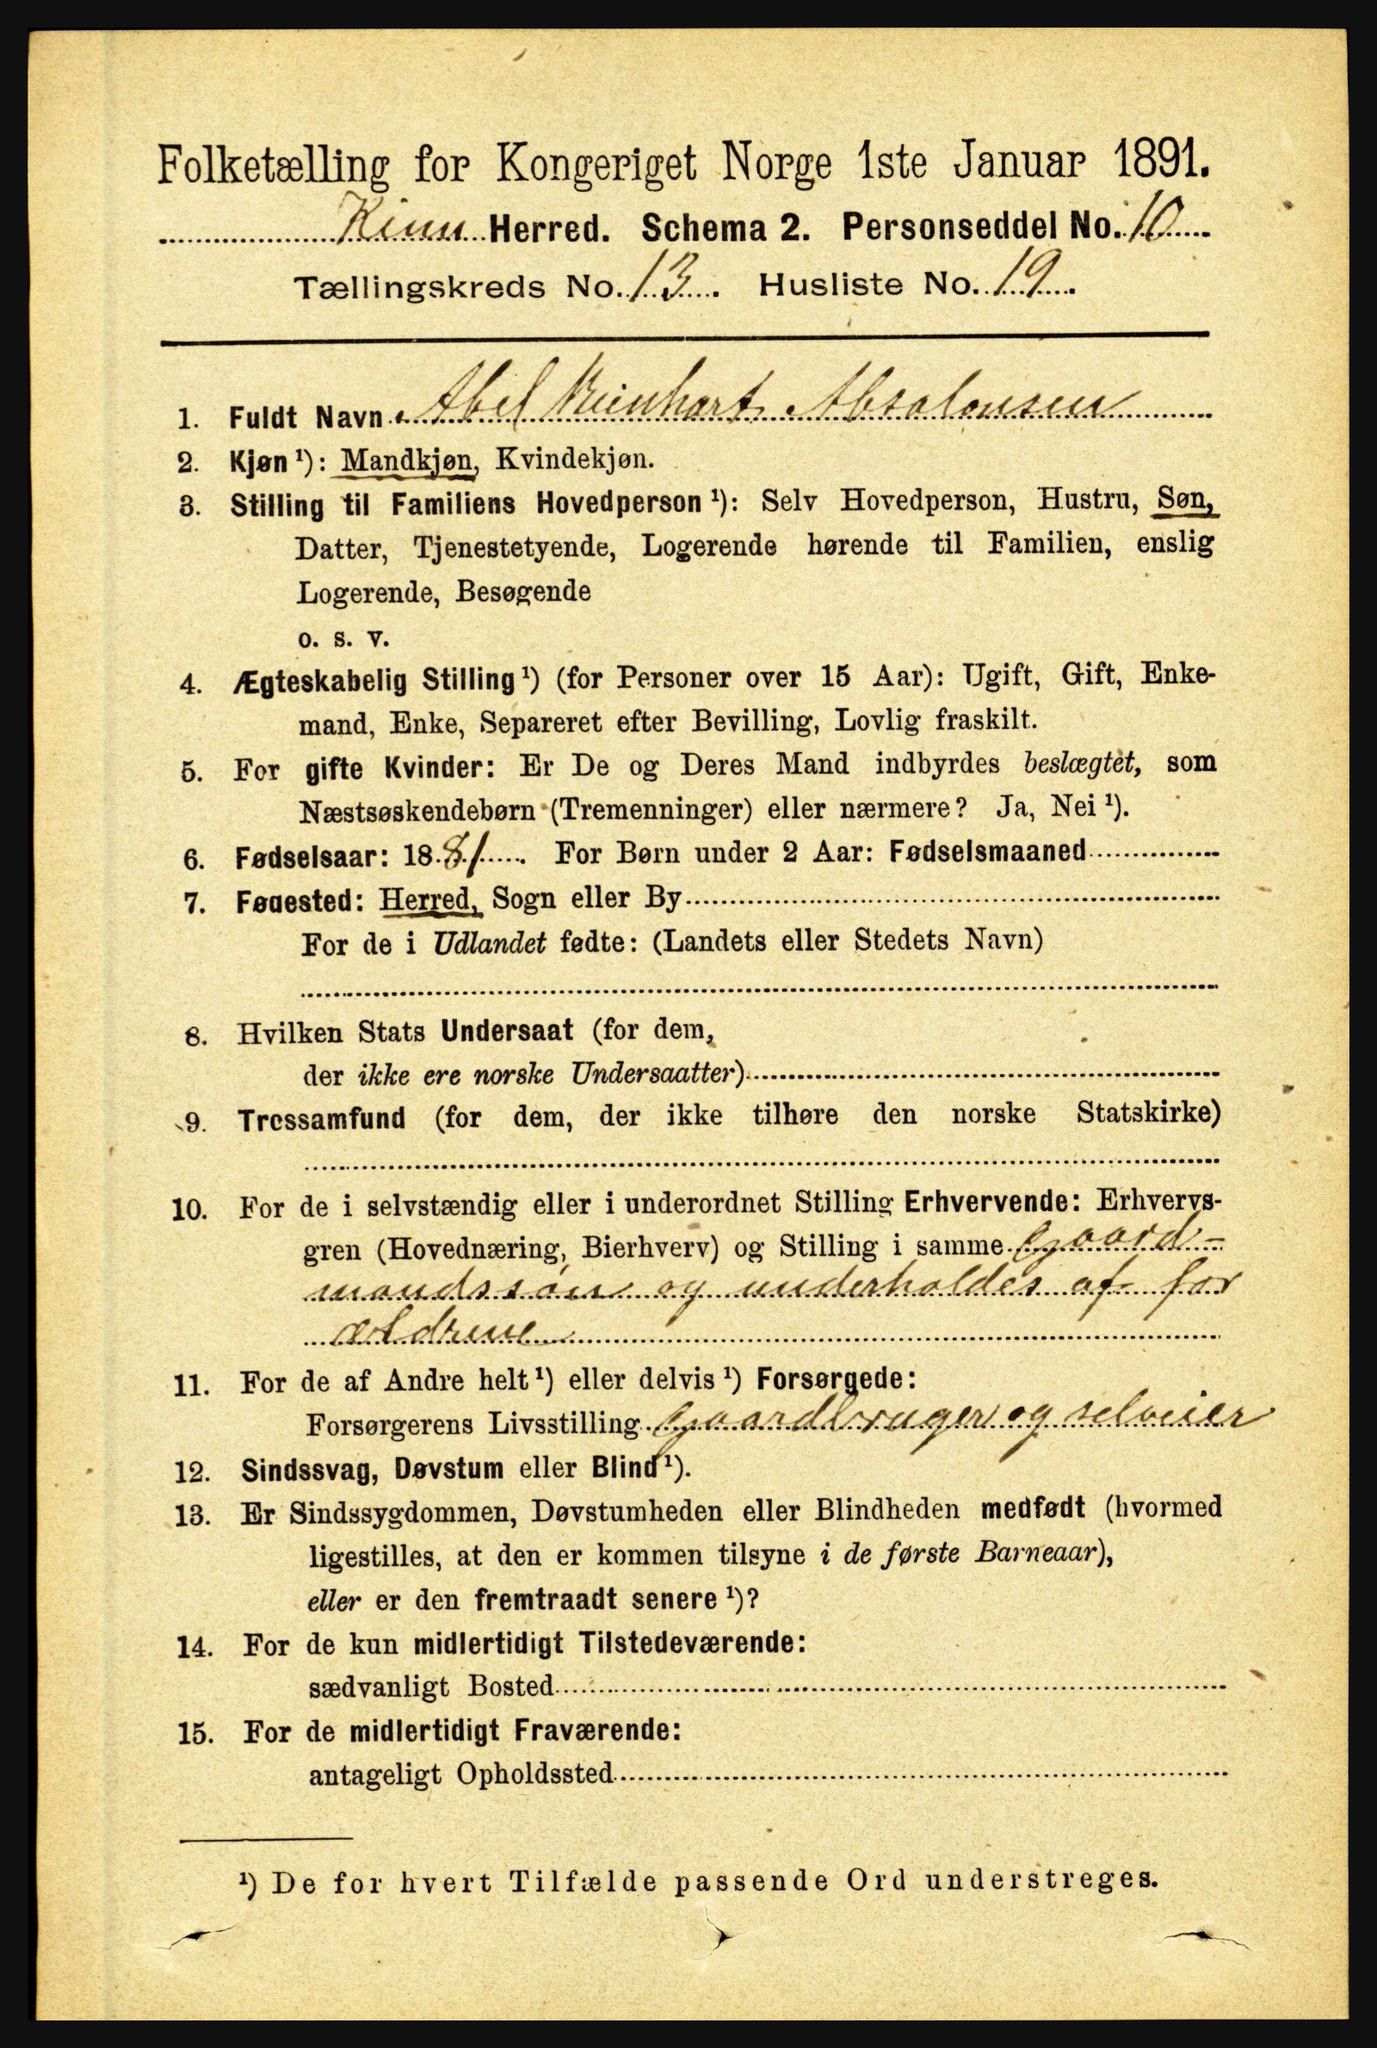 Folketælling for Kongeriget Norge 1ste Januar 1891.
Kinn Herred. Schema 2. Personseddel No. 10
Tællingskreds No. 13. Husliste No. 19
1. Fuldt Navn Abel Reinhart Absalonsen
2. Kjøn ¹): Mandkjøn, Kvindekjøn.
3. Stilling til Familiens Hovedperson ¹): Selv Hovedperson, Hustru, Søn,
Datter, Tjenestetyende, Logerende hørende til Familien, enslig
Logerende, Besøgende
o. s. v.
4. Ægteskabelig Stilling ¹) (for Personer over 15 Aar): Ugift, Gift, Enke-
mand, Enke, Separeret efter Bevilling, Lovlig fraskilt.
5. For gifte Kvinder: Er De og Deres Mand indbyrdes beslægtet, som
Næstsøskendebørn (Tremenninger) eller nærmere? Ja, Nei ¹).
6. Fødselsaar: 1881. For Børn under 2 Aar: Fødselsmaaned
7. Fødested: Herred, Sogn eller By
For de i Udlandet fødte: (Landets eller Stedets Navn)
8. Hvilken Stats Undersaat (for dem,
der ikke ere norske Undersaatter)
9. Trossamfund (for dem, der ikke tilhøre den norske Statskirke)
10. For de i selvstændig eller i underordnet Stilling Erhvervende: Erhvervs-
gren (Hovednæring, Bierhverv) og Stilling i samme Gaard-
mandssøn og underholdes af for
ældrene
11. For de af Andre helt ¹) eller delvis ¹) Forsørgede:
Forsørgerens Livsstilling Gaardbruger og selveier
12. Sindssvag, Døvstum eller Blind ¹).
13. Er Sindssygdommen, Døvstumheden eller Blindheden medfødt (hvormed
ligestilles, at den er kommen tilsyne i de første Barneaar),
eller er den fremtraadt senere ¹)?
14. For de kun midlertidigt Tilstedeværende:
sædvanligt Bosted
15. For de midlertidigt Fraværende:
antageligt Opholdssted
¹) De for hvert Tilfælde passende Ord understreges.